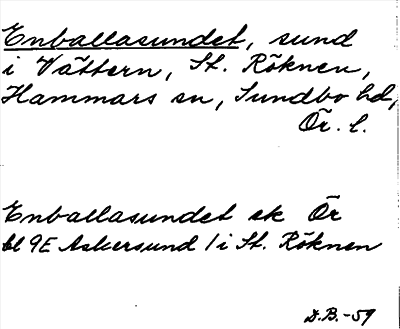 Enballasundet, sund
i Vättern, St. Röknen,
Hammars sn, Sundbo hd,
Ör. l.
Enballasundet ek Ör
bl 9E Askersund / i St. Röknen
D.B.-59